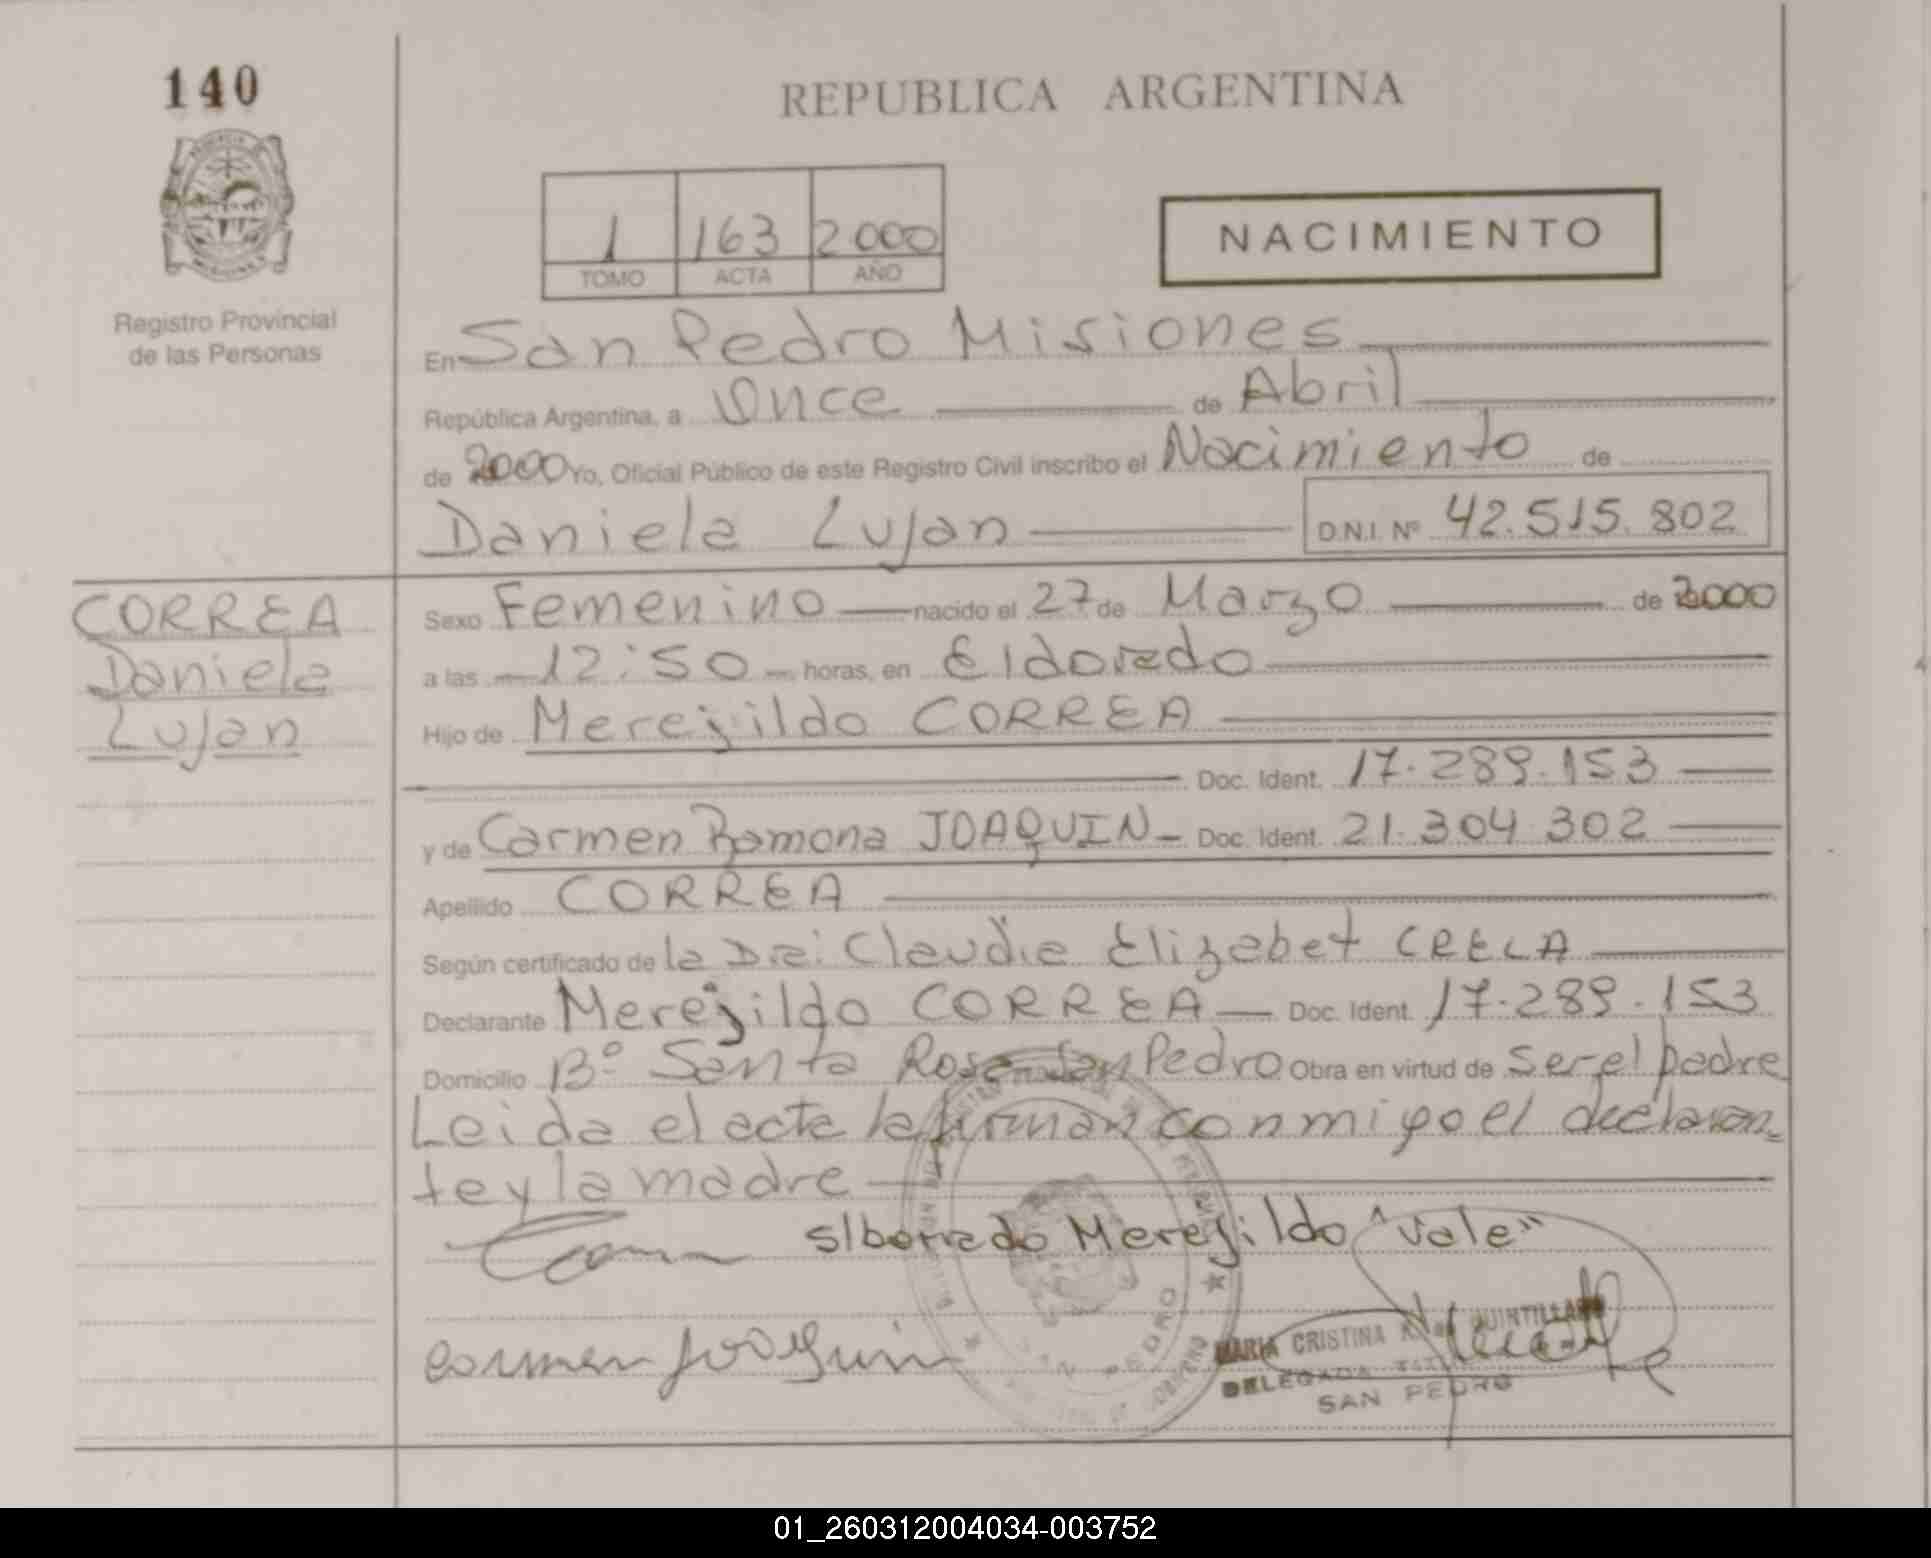 140
REPUBLICA ARGENTINA
1 163 2000
TOMO ACTA AÑO
NACIMIENTO
Registro Provincial
de las Personas
En San Pedro Misiones
República Argentina, a Once de Abril
de 2000 Yo, Oficial Público de este Registro Civil inscribo el Nacimiento de
Daniela Lujan D.N.I. Nº 42.515.802
CORREA
Daniela
Lujan
Sexo Femenino nacido el 27 de Marzo de 2000
a las 12:50 horas, en Eldorado
Hijo de Merejildo CORREA
Doc. Ident. 17.289.153
y de Carmen Ramona JOAQUIN Doc. Ident. 21.304.302
Apellido CORREA
Según certificado de la Dra: Claudia Elizabet CRELA
Declarante Merejildo CORREA Doc. Ident. 17.289.153
Domicilio Bº Santa Rosa San Pedro Obra en virtud de Ser el padre
Leida el acta la firman conmigo el declaran
te y la madre
S/borrado Merejildo "Vale"
Carmen Joaquin
MARIA CRISTINA QUINTILLAN
DELEGADA
SAN PEDRO
SAN PEDRO
01_260312004034-003752